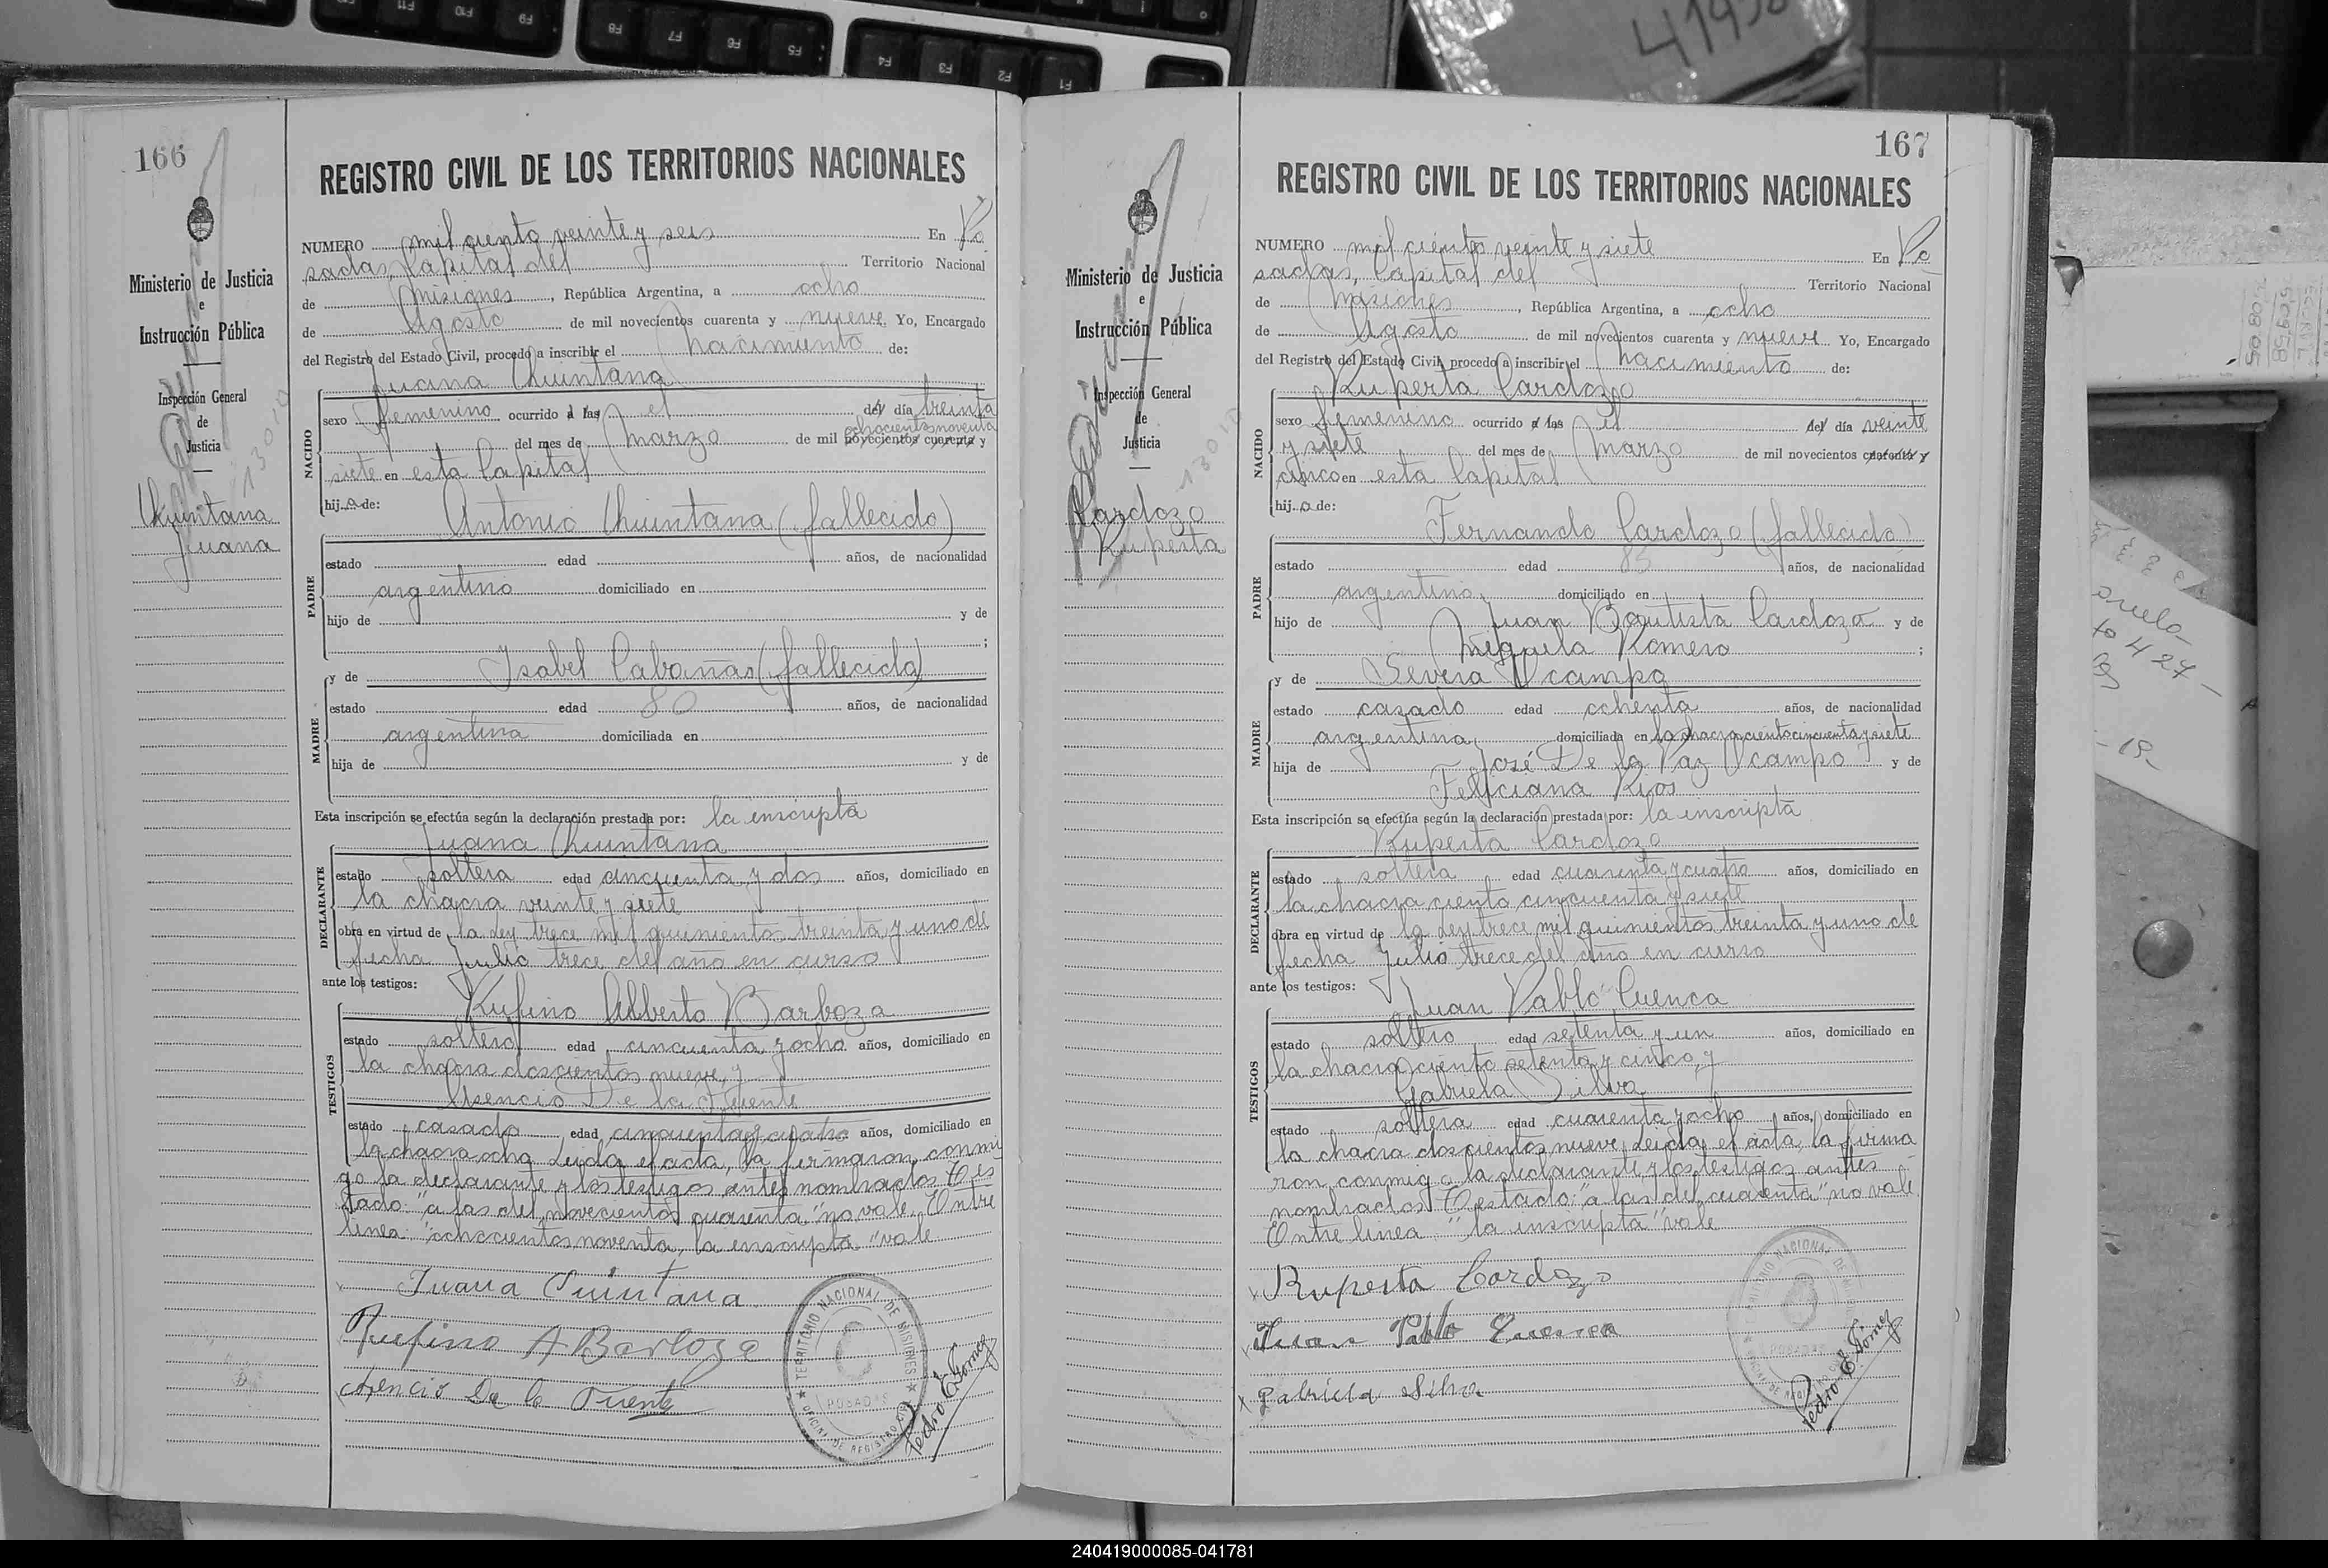 166
Ministerio de Justicia
e
Instrucción Pública
Inspección General
de
Justicia
Quintana
Juana
REGISTRO CIVIL DE LOS TERRITORIOS NACIONALES
NUMERO mil ciento veinte y seis En Po
sadas, Capital del Territorio Nacional
de Misiones, República Argentina, a ocho
de Agosto de mil novecientos cuarenta y nueve. Yo, Encargado
del Registro del Estado Civil, procedo a inscribir el nacimiento de:
Juana Quintana
NACIDO
sexo femenino ocurrido a las el del día treinta
ochocientos noventa
del mes de Marzo de mil novecientos cuarenta y
siete en esta Capital
hija de:
Antonio Quintana (fallecido)
PADRE
estado edad años, de nacionalidad
argentino domiciliado en
hijo de y de
;
y de Isabel Cabañas (fallecida)
MADRE
estado edad 80 años, de nacionalidad
argentina domiciliada en
hija de y de
Esta inscripción se efectúa según la declaración prestada por: la inscripta
Juana Quintana
DECLARANTE
estado soltera edad cincuenta y dos años, domiciliado en
la chacra veinte y siete
obra en virtud de la Ley trece mil quinientos treinta y uno de
fecha Julio trece del año en curso
ante los testigos:
Rufino Alberto Barboza
TESTIGOS
estado soltero edad cincuenta y ocho años, domiciliado en
la chacra doscientos nueve, y
Asencio De la Fuente
estado casado edad cincuenta y cuatro años, domiciliado en
la chacra ocho. Leida el acta, la firmaron conmi
go la declarante y los testigos antes nombrados. Tes
tado: "a las del novecientos cuarenta" no vale. Entre
linea: "ochocientos noventa, la inscripta" vale
Juana Quintana
Rufino A Barboza
Asencio De la Fuente
TERRITORIO NACIONAL DE MISIONES
POSADAS
OFICINA DE REGISTRO CIVIL
Pedro E. Gomez
167
Ministerio de Justicia
e
Instrucción Pública
Inspección General
de
Justicia
Cardozo
Ruperta
REGISTRO CIVIL DE LOS TERRITORIOS NACIONALES
NUMERO mil ciento veinte y siete En Po
sadas, Capital del Territorio Nacional
de Misiones, República Argentina, a ocho
de Agosto de mil novecientos cuarenta y nueve. Yo, Encargado
del Registro del Estado Civil, procedo a inscribir el nacimiento de:
Ruperta Cardozo
NACIDO
sexo femenino ocurrido a las el del día veinte
y siete del mes de Marzo de mil novecientos cuarenta y
cinco en esta Capital
hija de:
Fernando Cardozo (fallecido)
PADRE
estado edad 85 años, de nacionalidad
argentino, domiciliado en
hijo de Juan Bautista Cardozo y de
Miguela Romero ;
y de Severa Ocampo
MADRE
estado casado edad ochenta años, de nacionalidad
argentina, domiciliada en la chacra ciento cincuenta y siete
hija de José De la Paz Ocampo y de
Feliciana Rios
Esta inscripción se efectúa según la declaración prestada por: la inscripta
Ruperta Cardozo
DECLARANTE
estado soltera edad cuarenta y cuatro años, domiciliado en
la chacra ciento cincuenta y siete
obra en virtud de la Ley trece mil quinientos treinta y uno de
fecha Julio trece del año en curso
ante los testigos:
Juan Pablo Cuenca
TESTIGOS
estado soltero edad setenta y un años, domiciliado en
la chacra ciento setenta y cinco, y
Gabriela Silva
estado soltera edad cuarenta y ocho años, domiciliado en
la chacra doscientos nueve. Leida el acta, la firma
ron conmigo la declarante y los testigos antes
nombrados. Testado: "a las del cuarenta" no vale.
Entre linea: "la inscripta" vale
Ruperta Cardozo
Juan Pablo Cuenca
Gabriela Silva
TERRITORIO NACIONAL DE MISIONES
POSADAS
Pedro E. Gomez
240419000085-041781